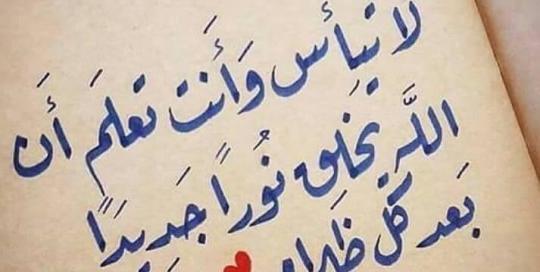 لا تيأس وَأَنت تعلَم أَن
اللَّه يخلق نُوراً جَديدًا
بَعد كُل ظلام